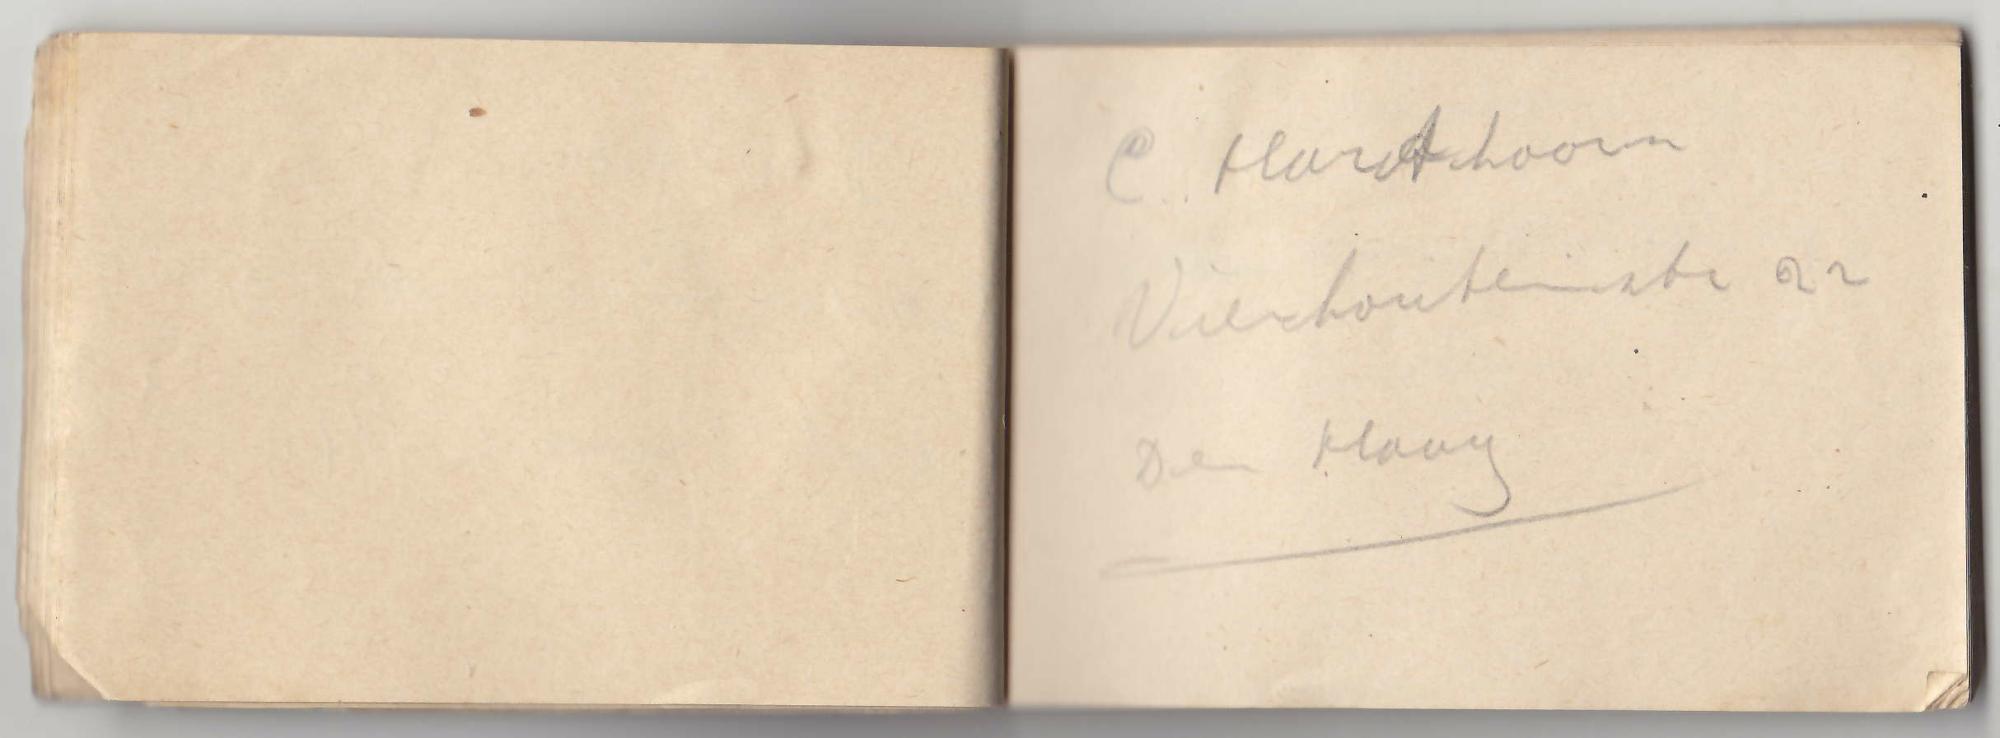 C. Hardthoorn
Vierhoutenstr 22
Den Haag